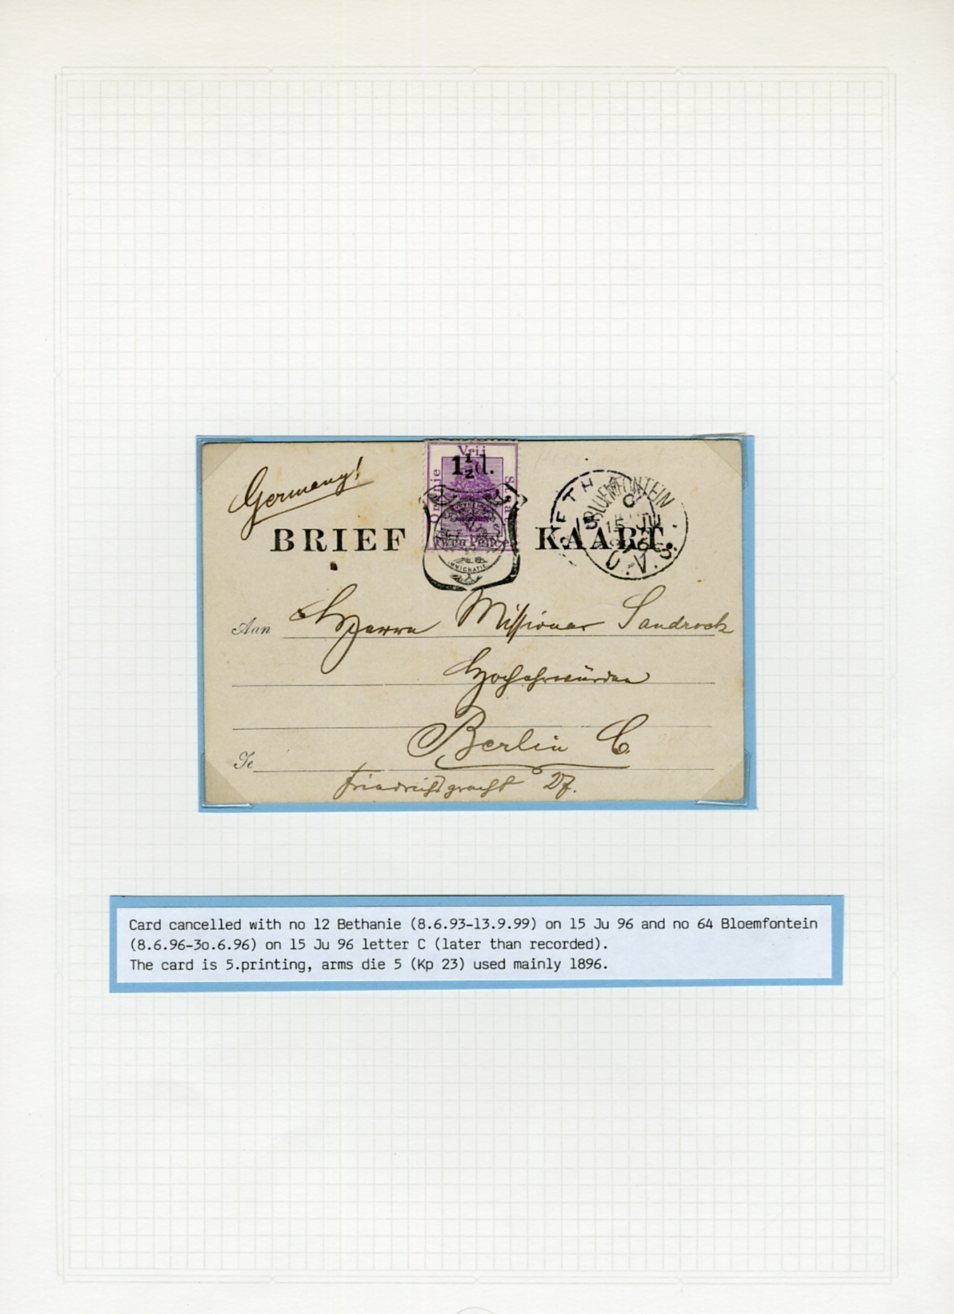 Germany!
Vrij
1½d.
BRIEF KAART.
BETH
BLOEMFONTEIN
C
15 JU
96
O.V.S.
Aan Herrn Missionar Sandrock
Hochehrwürden
Berlin C
Te
Friedrichsgracht 27.
Card cancelled with no 12 Bethanie (8.6.93-13.9.99) on 15 Ju 96 and no 64 Bloemfontein
(8.6.96-3o.6.96) on 15 Ju 96 letter C (later than recorded).
The card is 5.printing, arms die 5 (Kp 23) used mainly 1896.